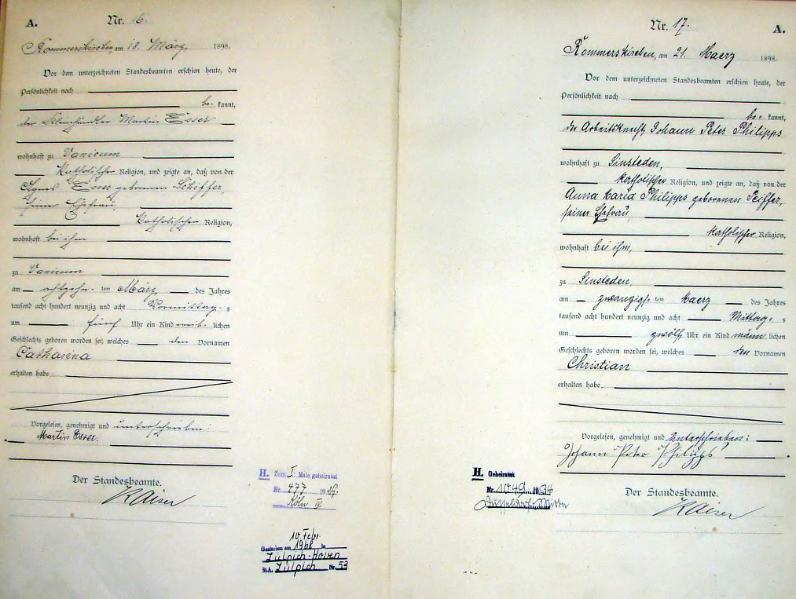 A.
Nr. 16.
Rommerskirchen, am 18. März 1898.
Vor dem unterzeichneten Standesbeamten erschien heute, der
Persönlichkeit nach
be- kannt,
der Martin Esser
wohnhaft zu Vanicum
Katholischer Religion, und zeigte an, daß von der
Agnes Esser geborenen Schiffer,
seiner Ehefrau,
Katholischer Religion,
wohnhaft bei ihm
zu Vanicum
am achtzehn- ten März des Jahres
tausend acht hundert neunzig und acht Vormittags
um fünf Uhr ein Kind weib- lichen
Geschlechts geboren worden sei, welches den Vornamen
Catharina
erhalten habe.
Vorgelesen, genehmigt und unterschrieben:
Martin Esser
Der Standesbeamte.
Kaiser
H. Zum I. Male geheiratet
Nr. 477
Köln
10. Febr.
Gestorben am 1968 in
Zülpich-Hoven
St.A. Zülpich Nr. 53
Nr. 17.
A.
Rommerskirchen, am 21. Maerz 1898.
Vor dem unterzeichneten Standesbeamten erschien heute, der
Persönlichkeit nach
be- kannt,
der Johann Peter Philipps
wohnhaft zu Sinsteden,
katholischer Religion, und zeigte an, daß von der
Anna Maria Philipps geborenen Peiffer,
seiner Ehefrau,
katholischer Religion,
wohnhaft bei ihm,
zu Sinsteden,
am zwanzigsten Maerz des Jahres
tausend acht hundert neunzig und acht Mittags
um zwölf Uhr ein Kind männlichen
Geschlechts geboren worden sei, welches den Vornamen
Christian
erhalten habe.
Vorgelesen, genehmigt und unterschrieben:
Johann Peter Philipps
Der Standesbeamte.
Kaiser
H. Geheiratet
Nr. 1049 1934